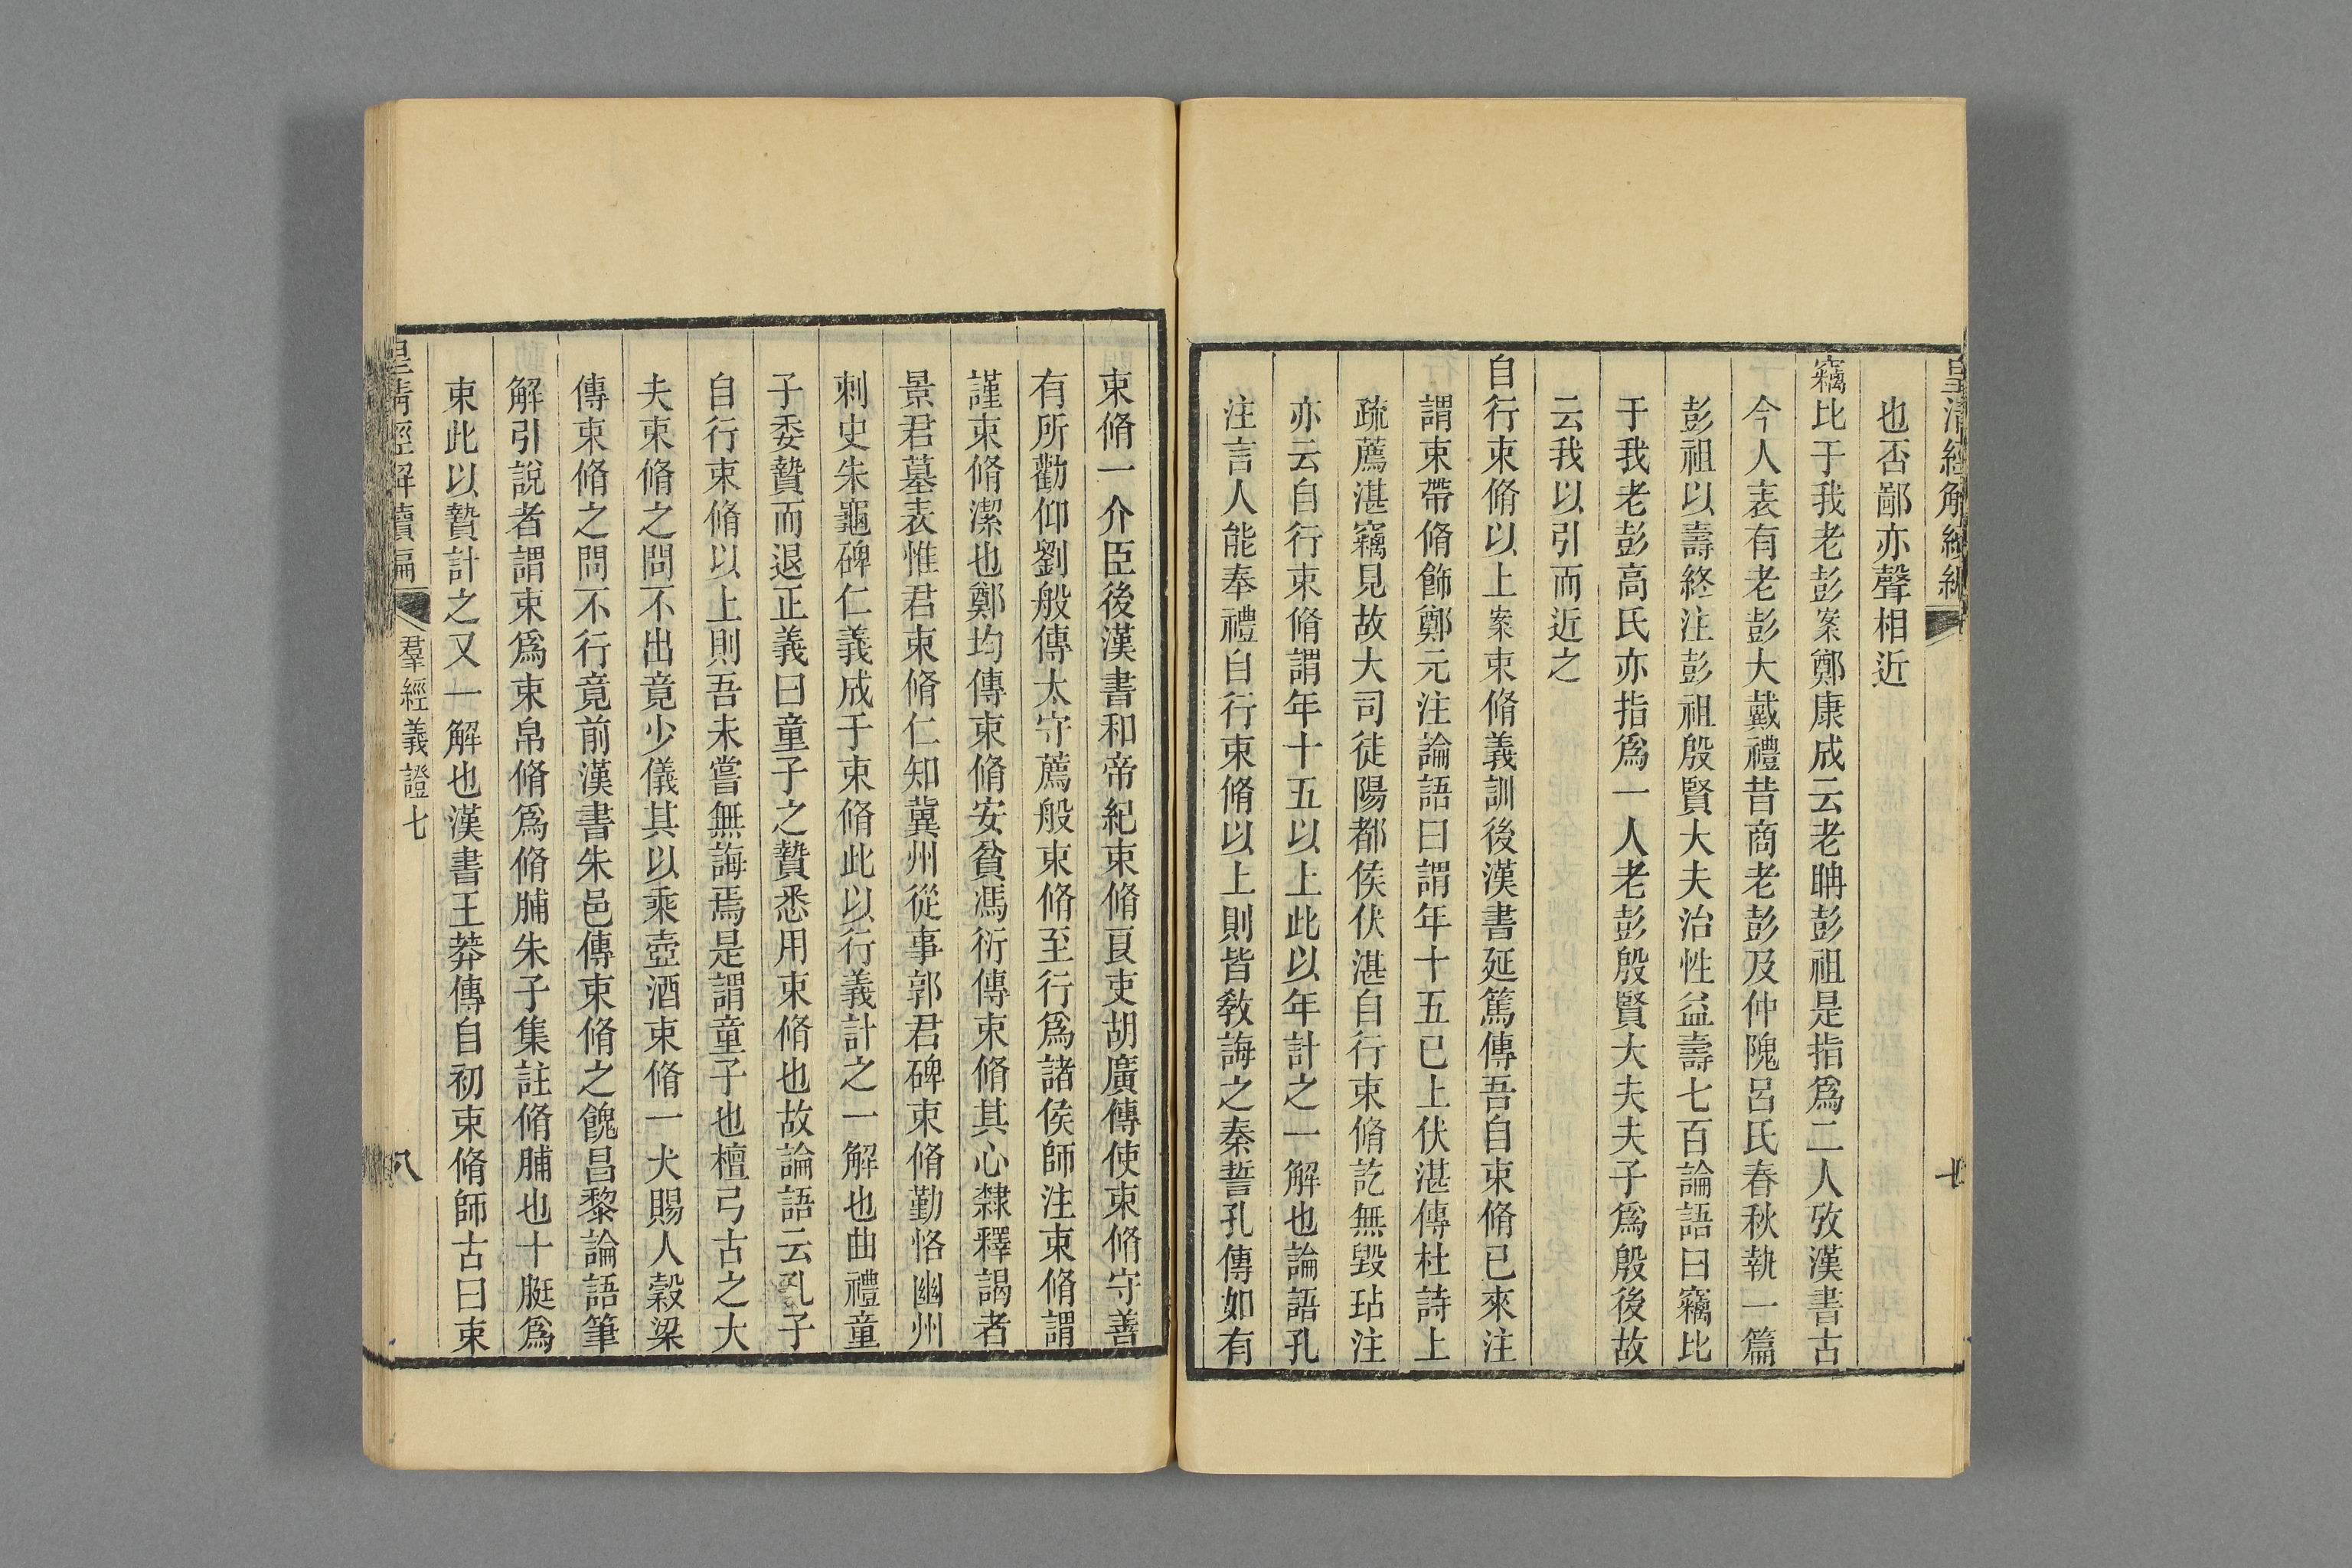 皇清經解續編
也否鄙亦聲相近
竊比于我老彭案鄭康成云老聃彭祖是指爲二人攷漢書古
今人表有老彭大戴禮昔商老彭及仲隗呂氏春秋執一篇
彭祖以壽終注彭祖殷賢大夫治性益壽七百論語曰竊比
于我老彭高氏亦指爲一人老彭殷賢大夫夫子爲殷後故
云我以引而近之
自行束脩以上案束脩義訓後漢書延篤傳吾自束脩已來注
謂束帶脩飾鄭元注論語曰謂年十五已上伏湛傳杜詩上
疏薦湛竊見故大司徒陽都侯伏湛自行束脩訖無毀玷注
亦云自行束脩謂年十五以上此以年計之一解也論語孔
注言人能奉禮自行束脩以上則皆敎誨之秦誓孔傳如有
束脩一介臣後漢書和帝紀束脩良吏胡廣傳使束脩守善
有所勸仰劉般傳太守薦般束脩至行爲諸侯師注束脩謂
謹束脩潔也鄭均傳束脩安貧馮衍傳束脩其心隸釋謁者
景君墓表惟君束脩仁知冀州從事郭君碑束脩勤恪幽州
刺史朱龜碑仁義成于束脩此以行義計之一解也曲禮童
子委贄而退正義曰童子之贄悉用束脩也故論語云孔子
自行束脩以上則吾未嘗無誨焉是謂童子也檀弓古之大
夫束脩之問不出竟少儀其以乘壺酒束脩一犬賜人穀梁
傳束脩之問不行竟前漢書朱邑傳束脩之餽昌黎論語筆
解引說者謂束爲束帛脩爲脩脯朱子集註脩脯也十脡爲
束此以贄計之又一解也漢書王莽傳自初束脩師古曰束
皇淸經解續編 羣經義證七 八